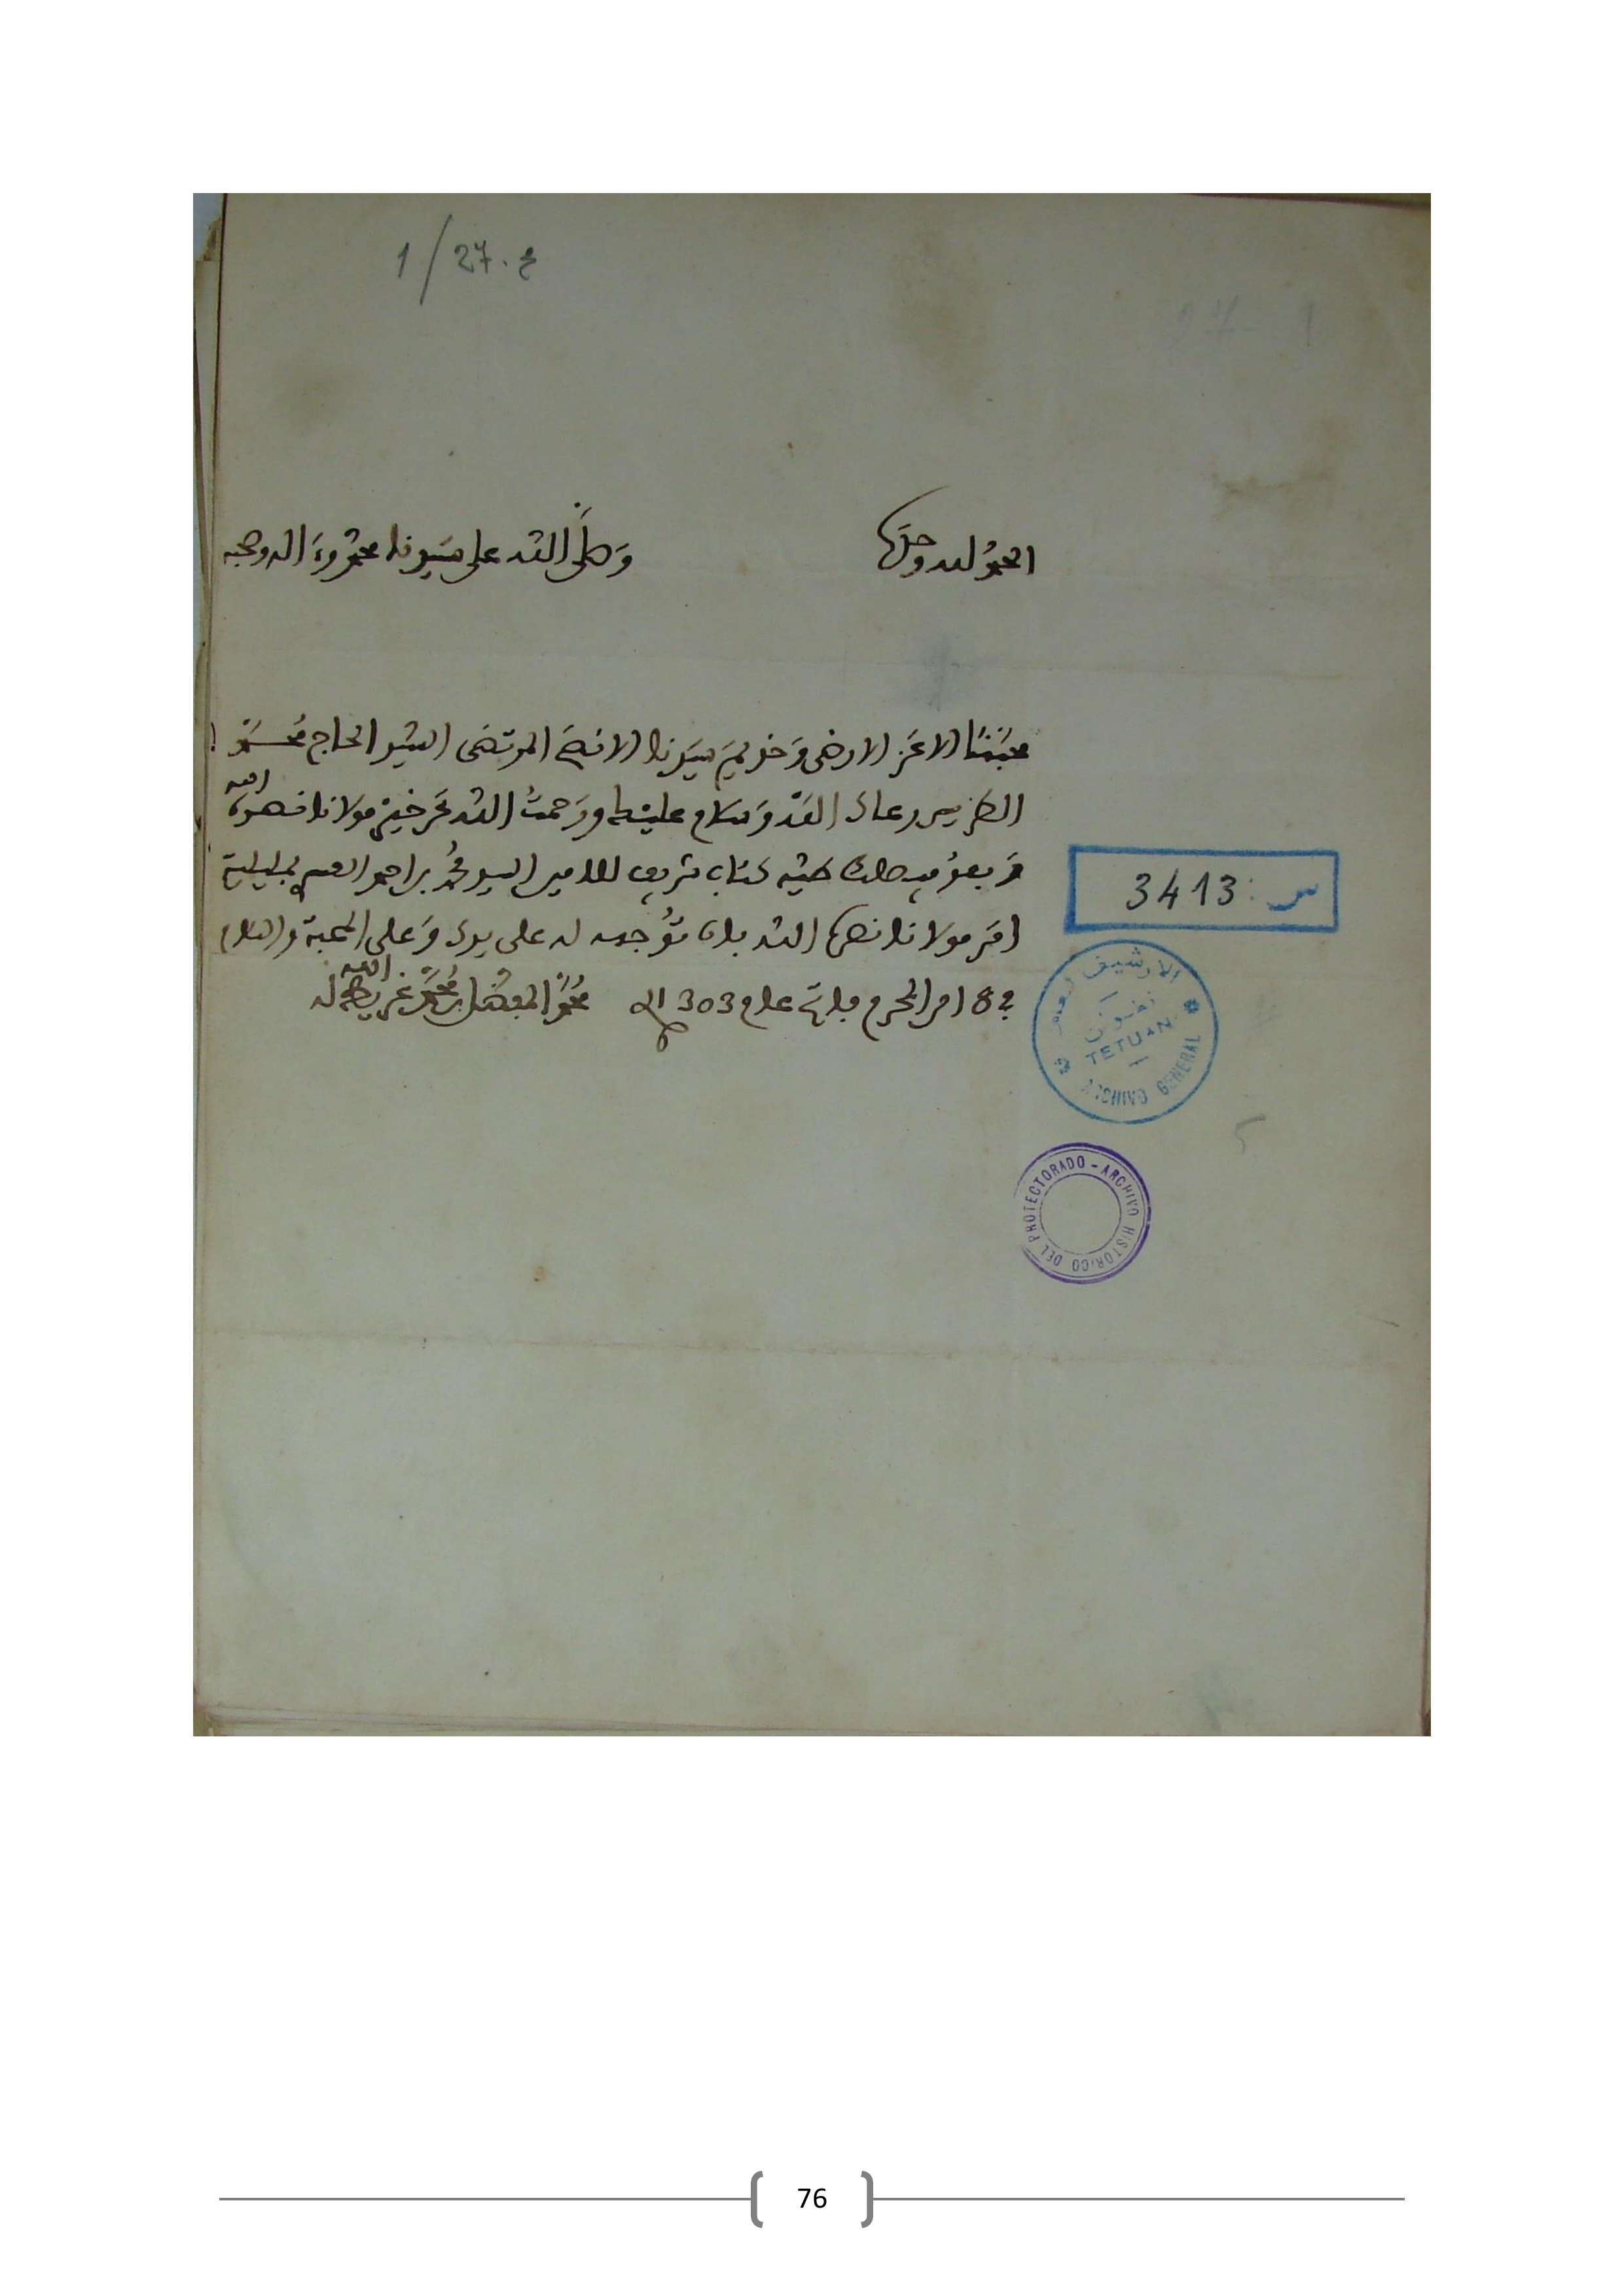 1/27.ع
الحمد لله وحده
وصلى الله على سيدنا محمد وءاله وصحبه
محبنا الاعز الارضى وخديم سيدنا الانصح المرتضى السيد الحاج محمد
الطريس رعاك الله وسلام عليك ورحمت الله عن خير مولانا نصره الله
وبعد فيصلك طيه كتاب شريف للامين السيد محمد بن احمد بمليلية
امر مولانا نصره الله بان توجهه له على يدك وعلى المحبة والسلام
في 8 من المحرم فاتح عام 1303
محمد المفضل بن محمد غريط لطف الله به
س: 3413
الأرشيف العام
تطوان
TETUAN
ARCHIVO GENERAL
ARCHIVO HISTORICO DEL PROTECTORADO -
76